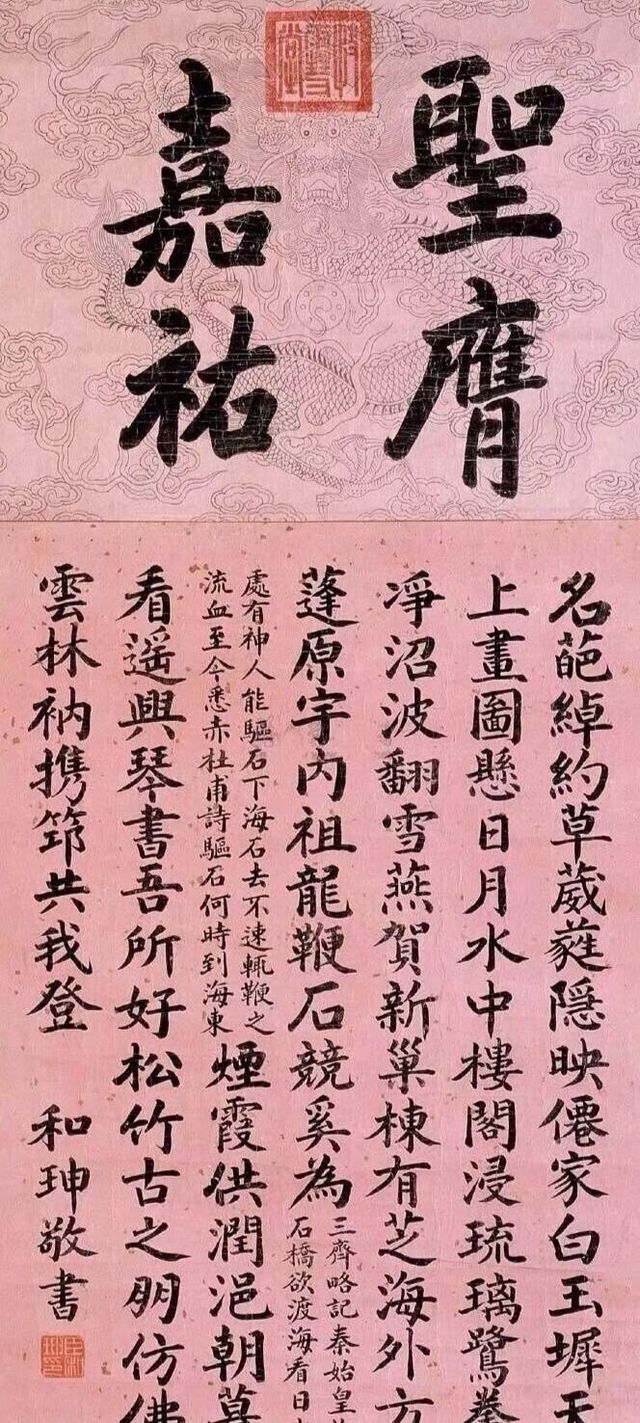 聖膺
嘉祐
名葩綽約草葳蕤隱映僊家白玉墀天
上畫圖懸日月水中樓閣浸琉璃鷺拳
淨沼波翻雪燕賀新巢棟有芝海外方
蓬原宇內祖龍鞭石競奚為
三齊略記秦始皇
石橋欲渡海看日
處有神人能驅石下海石去不速輒鞭之
流血至今悉赤杜甫詩驅石何時到海東
煙霞供潤浥朝暮
看遥興琴書吾所好松竹古之朋仿佛
雲林衲携笻共我登
和珅敬書